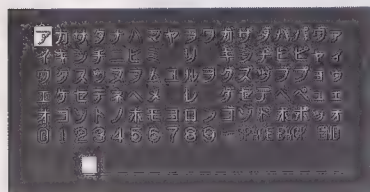 アカサタナハマヤラワ ガザダバパャァ
イキシチニヒミ リ ギジヂビピ ィ
ウクスツヌフムユルヲ グズヅブプュゥ
エケセテネヘメ レ ゲゼデベペ ェ
オコソトノホモヨロン ゴゾドボポョォ
0123456789 ー SPACE BACK END